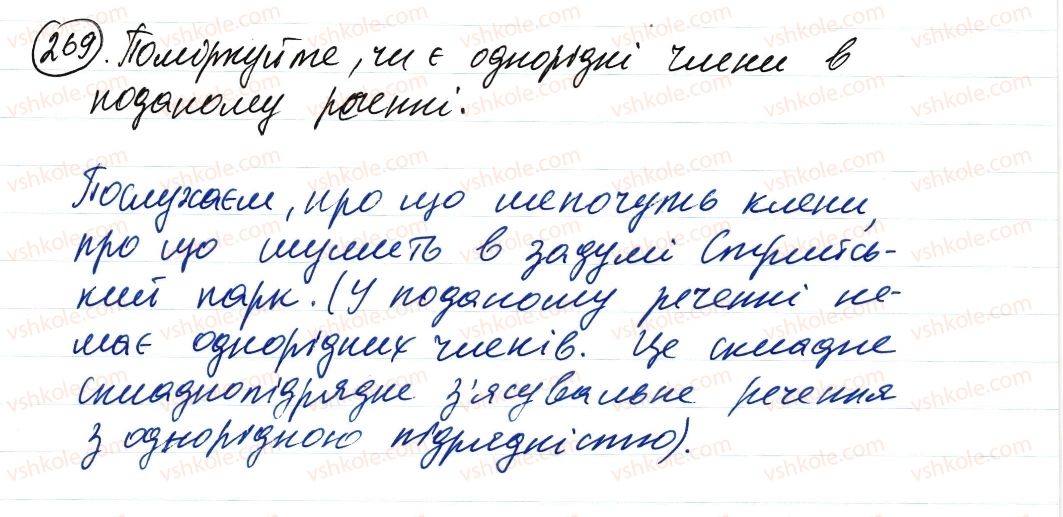 269. Поміркуйте, чи є однорідні члени в
поданому реченні.
Послухаєм, про що шепочуть клени,
про що шумить в задумі Стрийсь-
кий парк. (У поданому реченні не-
має однорідних членів. Це складне
складнопідрядне з'ясувальне речення
з однорідною підрядністю).